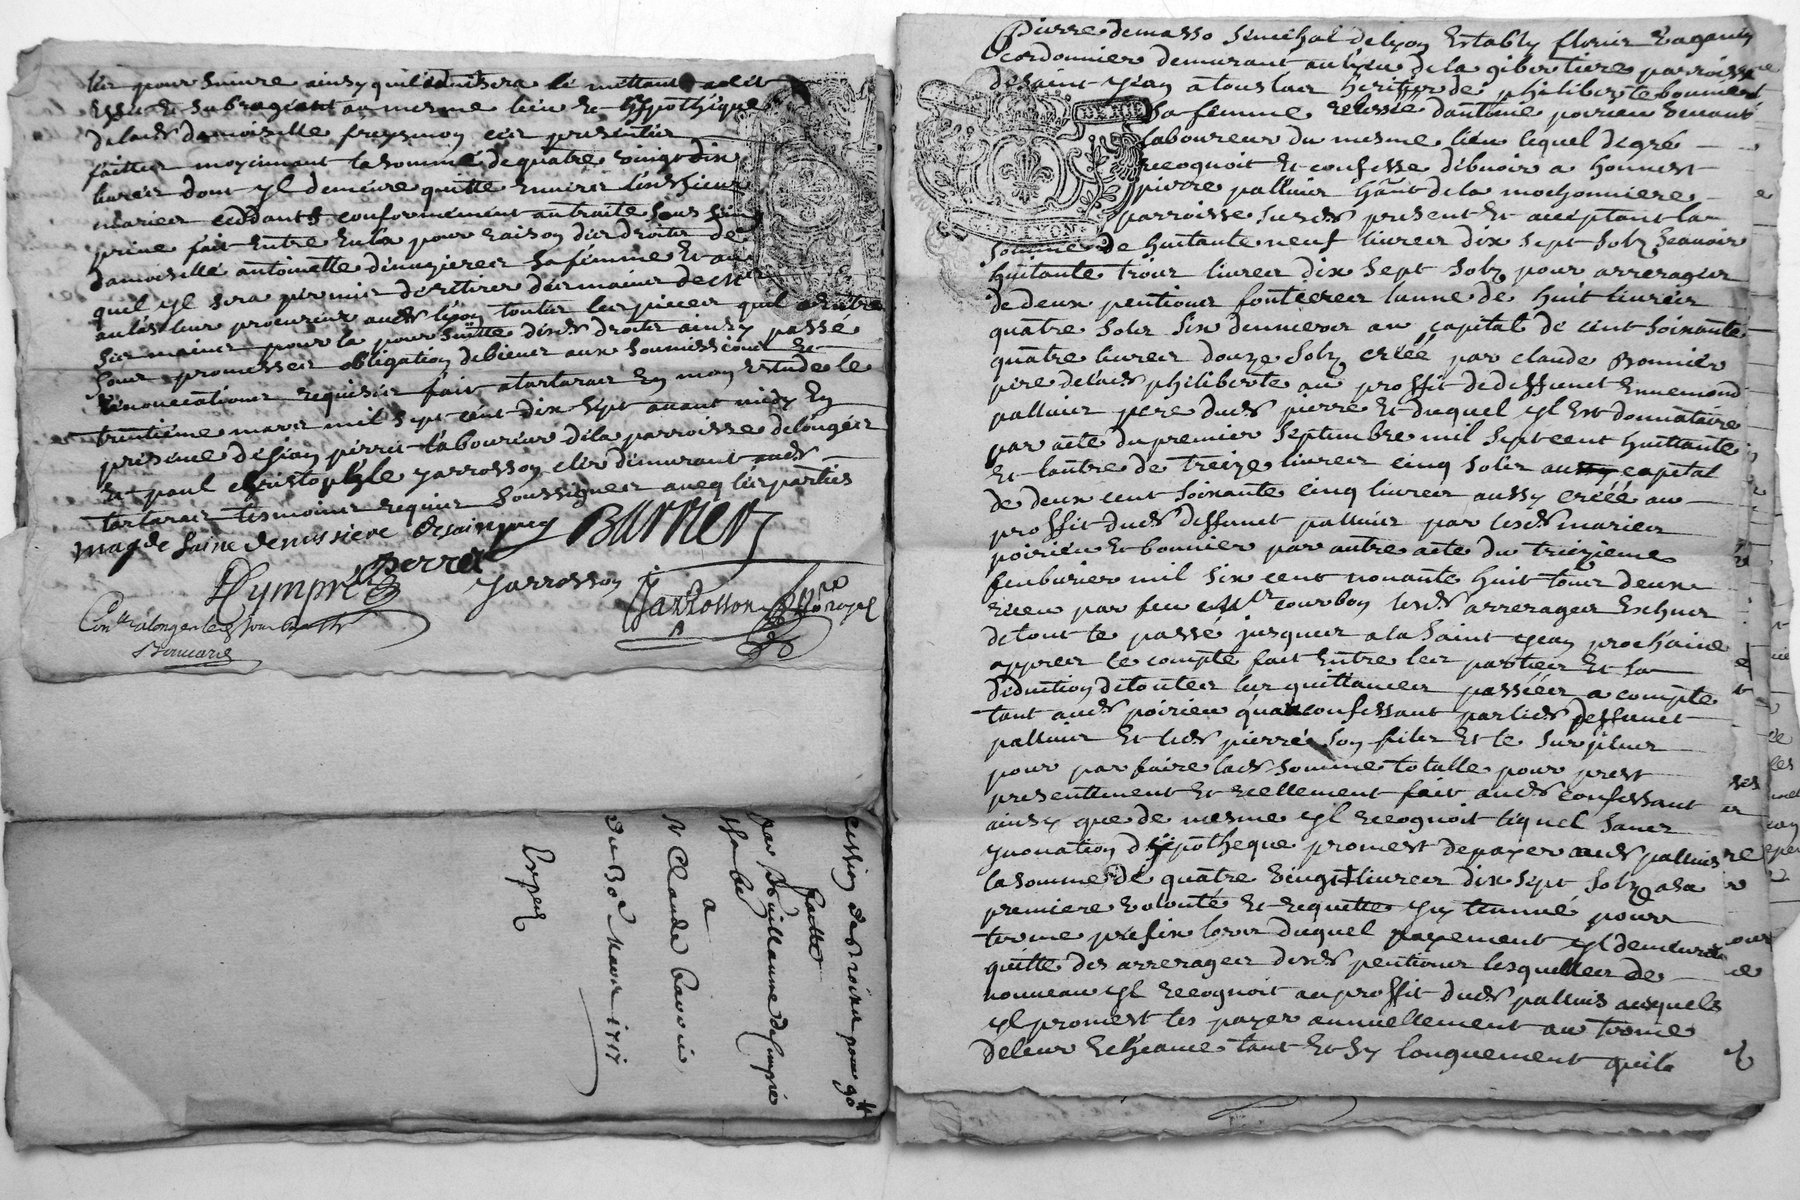 les pour suivre ainsy quil avisera le mettant a cet
effet et subrogeant au mesme lieu et hypothèque
de lad damoiselle
faittes moyennant la somme de quatre vingt dix
livres dont yl demeure quitte envers lesd sieurs
mariez cedants conformement au traité sous sein
privé fait entre eux pour raison des droits de
damoiselle antoinette sa femme et au
quel yl sera permis de retirer des mains de
leur procureur aud lyon toutes les pieces quil a entre
ses mains pour la pour suitte desd droits ainsy passé
sous promesses obligation de biens aux soumissions et
renonciations requises fait a tartaras en mon estude le
trentiéme mars mil sept cent dix sept avant midy en
presence de jean pierre laboureur de la parroisse de longes
et paul christophle Jarrosson clerc demeurant aud
tartaras tesmoins requis soussignes avec les parties
Barrier
Dympré perret Jarrosson
Jarrosson Nore royal
Conllé a longes le
cession des droits pour 90 ll
faitte
par Sr Guillaume dympré
a
Sr Claude
du 30e Mars 1717
Expedié
Pierre de masso senechal de lyon Estably
Cordonnier demeurant au lieu de la giberture parroisse
de saint Jean a touslas heritier de philiberte bonnier
sa femme relissée dantoine poirieu vivant
laboureur du mesme lieu lequel de gré
recognoit et confesse debvoir a honnest
pierre palluis hant de la mochonniere
parroisse susd present et acceptant la
somme de huitante neuf livres dix sept solz scavoir
huitante trois livres dix sept solz pour arrerages
de deux pentions foncieres lanne de huit livres
quatre solz six deniers au capital de cent soixante
quatre livres douze solz créée par claude Bonnier
pere de lad philiberte au proffit de deffunct Ennemond
palluis pere dud pierre et duquel yl est donnataire
par acte du premier septembre mil sept cent huittante
Et lautre de treize livres cinq solz au capital
de deux cent soixante cinq livres aussy créée au
proffit dud deffunct palluis par lesd mariez
poirieu et bonnier par autre acte du treiziéme
febvrier mil six cent nonante huit tous deux
receu par feu Me courbon lesd arrerages Escheus
de tout le passé jusques a la saint Jean prochaine
appres le compte fait Entre les parties et la
deduction de toutes les quittances passées a compte
tant aud poirieu quau confessant par led deffunct
palluis et led pierre son fils Et le surplus
pour par faire lad somme totalle pour prest
presentement et reellement fait aud confessant
ainsy que de mesme yl recognoit lequel sans
ynovation dhypotheque promest de payer aud palluis
la somme de quatre vingt livres dix sept solz a sa
premiere volonté et requette
terme prefix lors duquel payement yl demeurera
quitte des arrerages desd pentions lesquelles de
nouveau yl recognoit au proffit dud palluis auquels
yl promest les payer annuellement au terme
de leur Echeance tant Et sy longuement quil